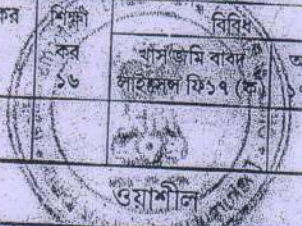 কর শিক্ষা কর ১৬
বিবিধ
খাস জমি বাবদ
লাইসেন্স ফি১৭ (ক)
ওয়াশীল